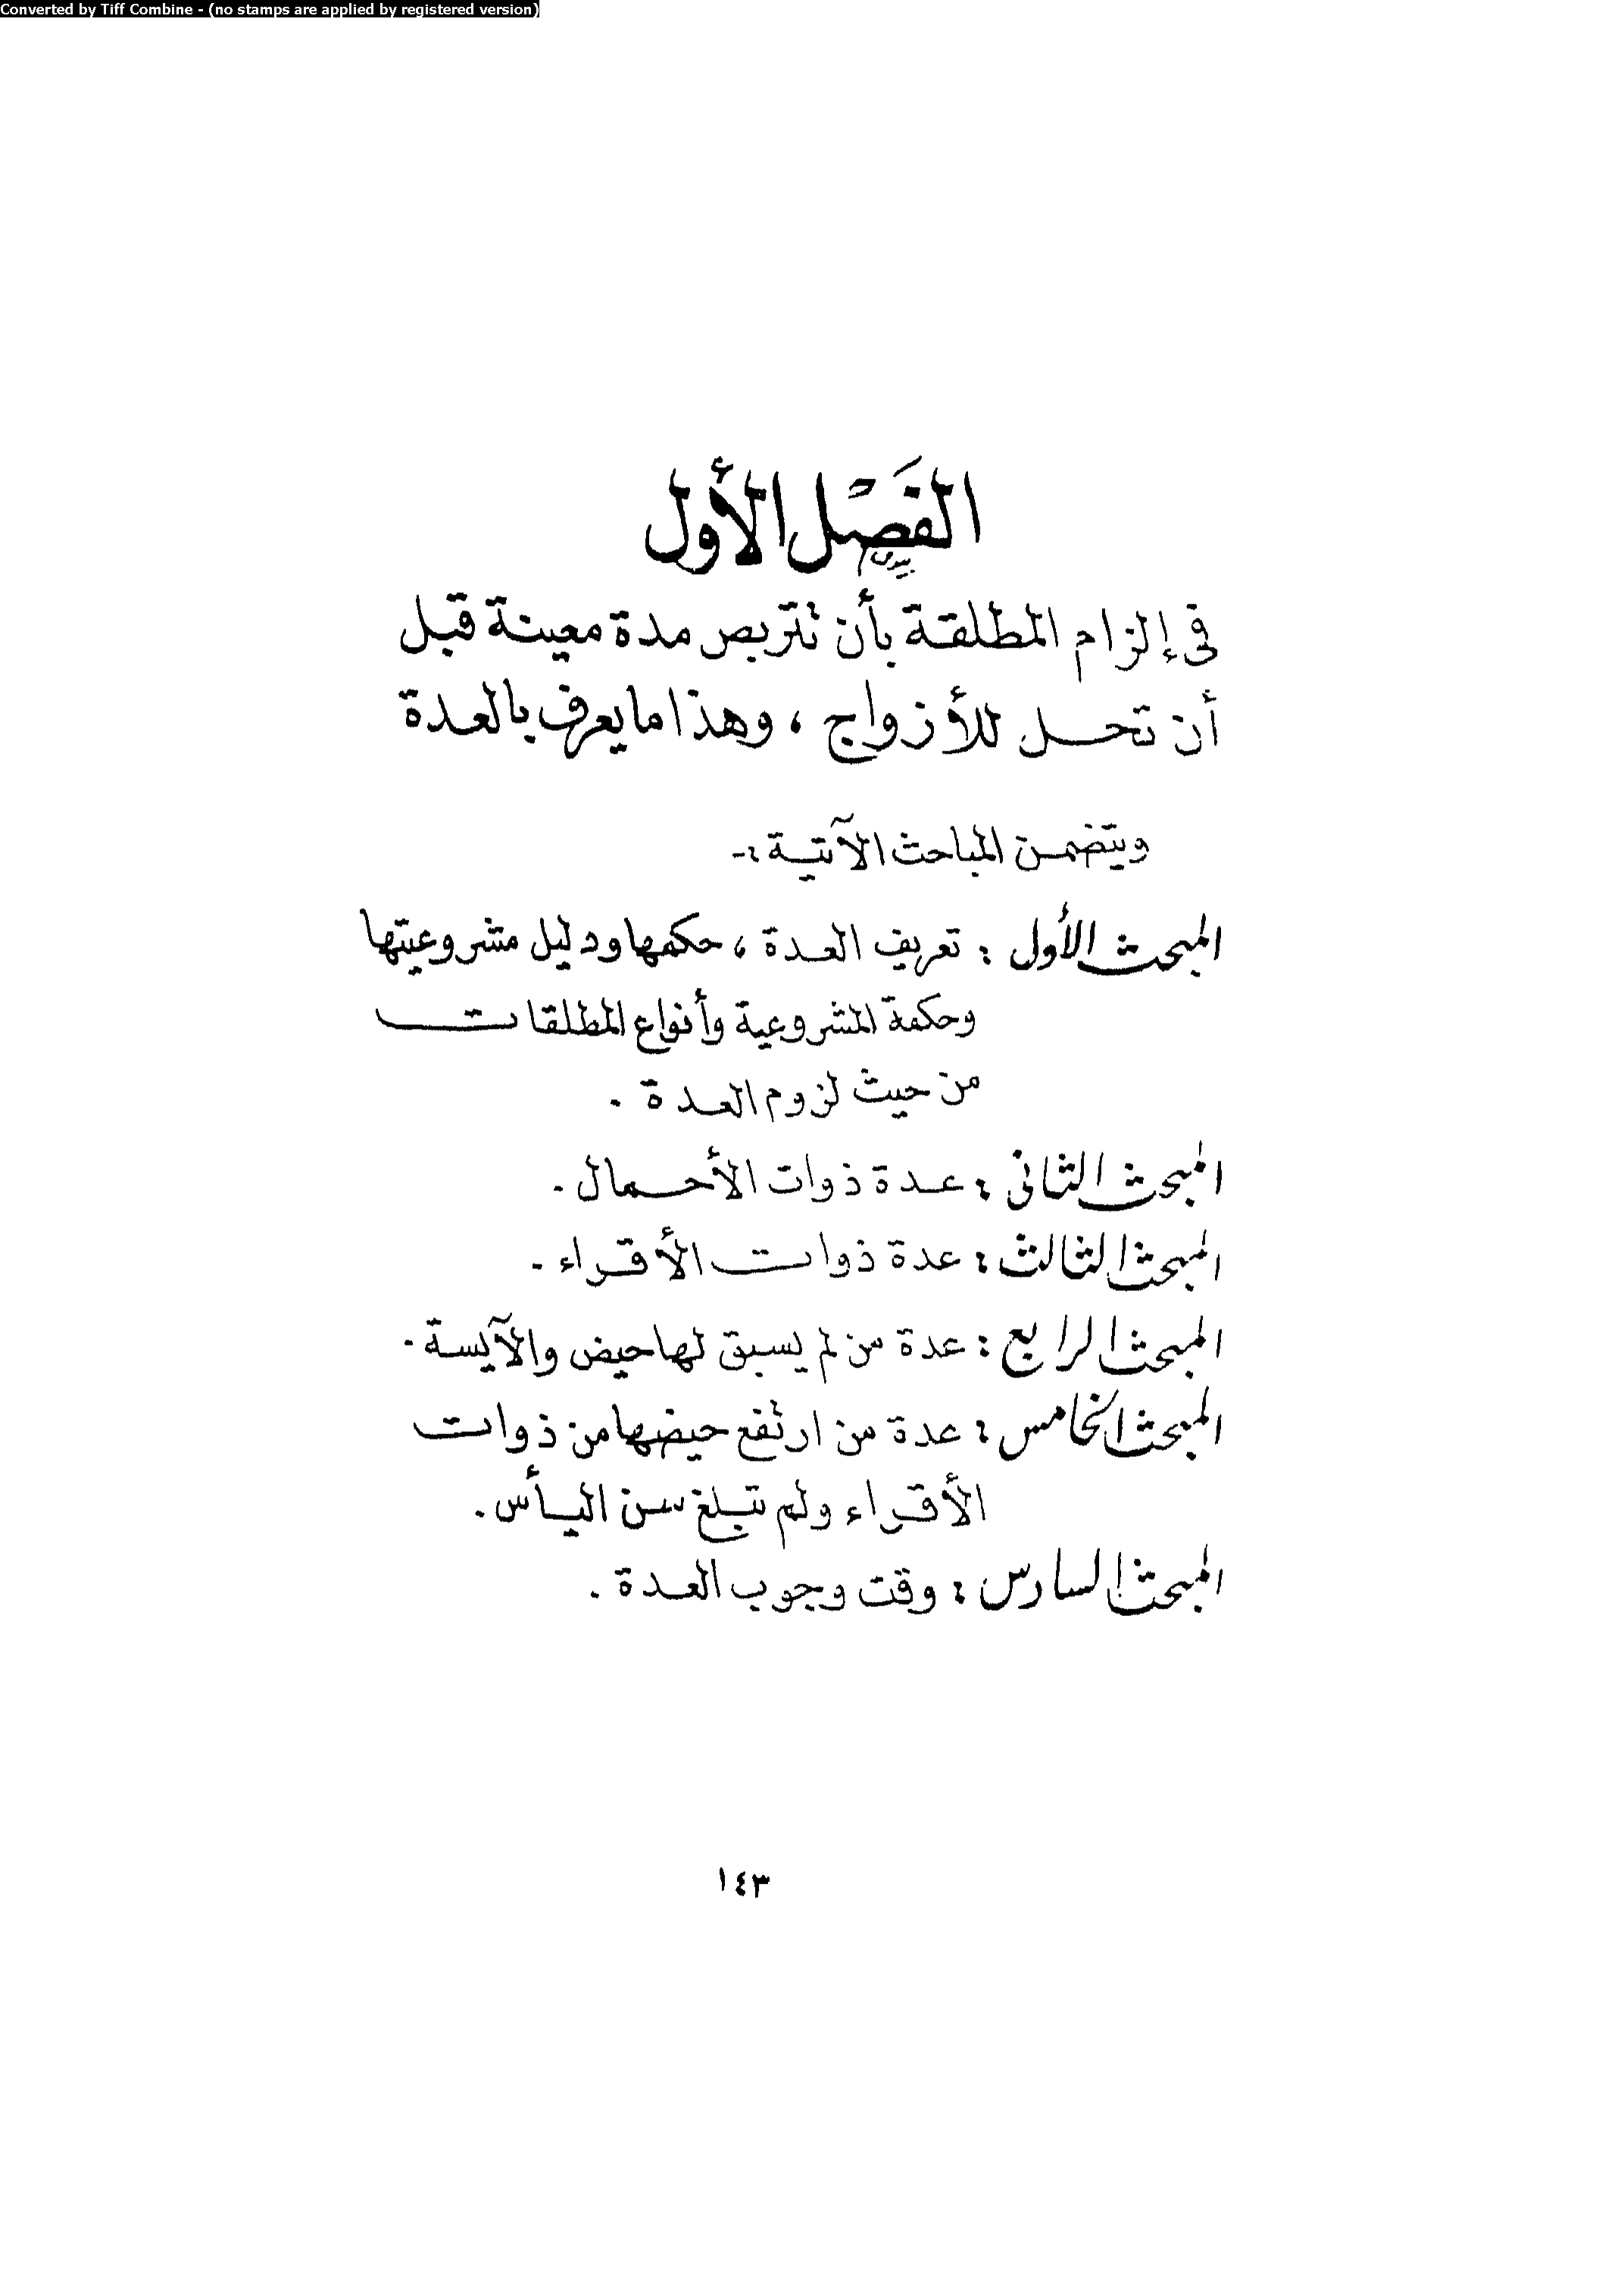 Converted by Tiff Combine - (no stamps are applied by registered version)
الفَصْل الأول
فى إلزام المطلقة بأن تتربص مدة معينة قبل
أن تحل للأزواج ، وهذا ما يعرف بالعدة
ويتضمن المباحث الآتية :-
المبحث الأول : تعريف العدة ، حكمها ودليل مشروعيتها
وحكمة المشروعية وأنواع المطلقات
من حيث لزوم العدة .
المبحث الثانى : عدة ذوات الأحمال .
المبحث الثالث : عدة ذوات الأقراء .
المبحث الرابع : عدة من لم يسبق لها حيض والآيسة .
المبحث الخامس : عدة من ارتفع حيضها من ذوات
الأقراء ولم تبلغ سن اليأس .
المبحث السادس : وقت وجوب العدة .
١٤٣